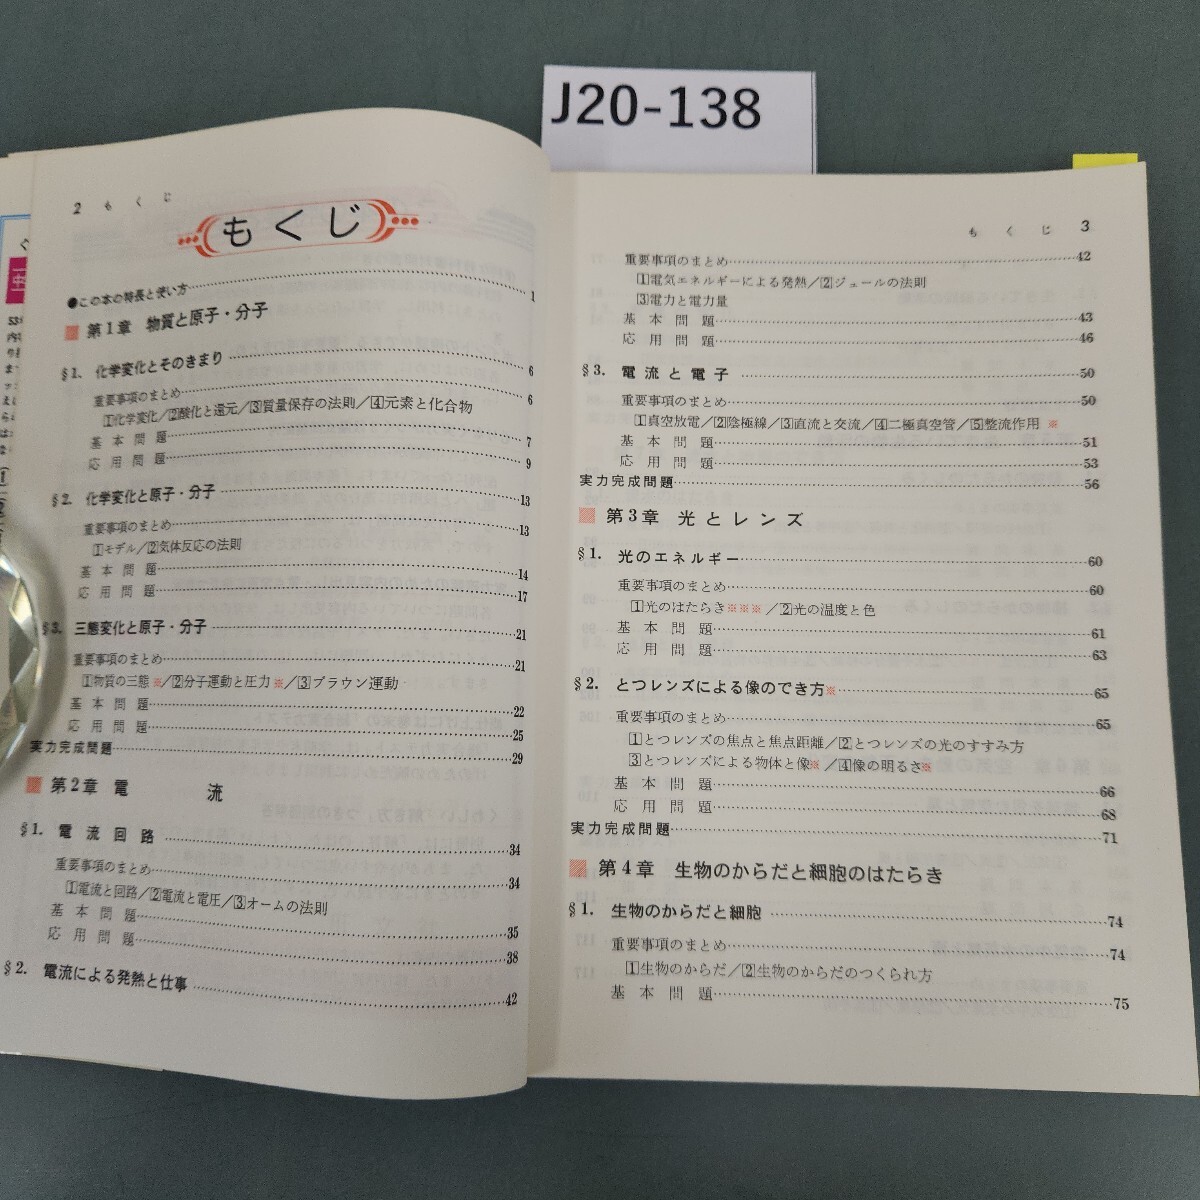 J20-138
2 もくじ
もくじ
●この本の特長と使い方 1
第1章 物質と原子・分子
§1. 化学変化とそのきまり 6
重要事項のまとめ 6
1化学変化/2酸化と還元/3質量保存の法則/4元素と化合物
基本問題 7
応用問題 9
§2. 化学変化と原子・分子 13
重要事項のまとめ 13
1モデル/2気体反応の法則
基本問題 14
応用問題 17
§3. 三態変化と原子・分子 21
重要事項のまとめ 21
1物質の三態※/2分子運動と圧力※/3ブラウン運動
基本問題 22
応用問題 25
実力完成問題 29
第2章 電流
§1. 電流回路 34
重要事項のまとめ 34
1電流と回路/2電流と電圧/3オームの法則
基本問題 35
応用問題 38
§2. 電流による発熱と仕事 42
もくじ 3
重要事項のまとめ 42
1電気エネルギーによる発熱/2ジュールの法則
3電力と電力量
基本問題 43
応用問題 46
§3. 電流と電子 50
重要事項のまとめ 50
1真空放電/2陰極線/3直流と交流/4二極真空管/5整流作用※
基本問題 51
応用問題 53
実力完成問題 56
第3章 光とレンズ
§1. 光のエネルギー 60
重要事項のまとめ 60
1光のはたらき※※※/2光の温度と色
基本問題 61
応用問題 63
§2. とつレンズによる像のでき方※ 65
重要事項のまとめ 65
1とつレンズの焦点と焦点距離/2とつレンズの光のすすみ方
3とつレンズによる物体と像※/4像の明るさ※
基本問題 66
応用問題 68
実力完成問題 71
第4章 生物のからだと細胞のはたらき
§1. 生物のからだと細胞 74
重要事項のまとめ 74
1生物のからだ/2生物のからだのつくられ方
基本問題 75